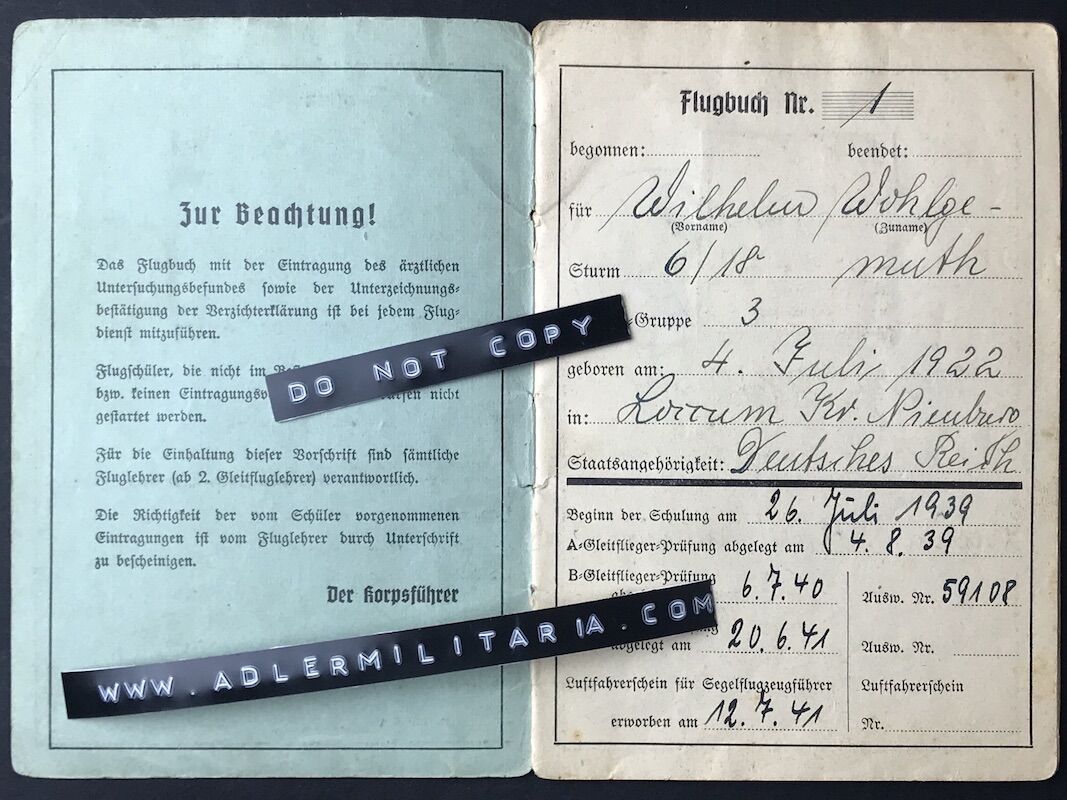 Zur Beachtung!
Das Flugbuch mit der Eintragung des ärztlichen
Untersuchungsbefundes sowie der Unterzeichnungs-
bestätigung der Verzichterklärung ist bei jedem Flug-
dienst mitzuführen.
Flugschüler, die nicht im
bzw. keinen nicht
gestartet werden.
Für die Einhaltung dieser Vorschrift sind sämtliche
Fluglehrer (ab 2. Gleitfluglehrer) verantwortlich.
Die Richtigkeit der vom Schüler vorgenommenen
Eintragungen ist vom Fluglehrer durch Unterschrift
zu bescheinigen.
Der Korpsführer
DO NOT COPY
WWW.ADLERMILITARIA.COM
Flugbuch Nr. 1
begonnen: beendet:
für Wilhelm Wohlge-
(Vorname) (Zuname)
Sturm 6/18 muth
Gruppe 3
geboren am: 4. Juli 1922
in: Loccum Kr. Nienburg
Staatsangehörigkeit: Deutsches Reich
Beginn der Schulung am 26. Juli 1939
A-Gleitflieger-Prüfung abgelegt am 4. 8. 39
B-Gleitflieger-Prüfung
6. 7. 40 Ausw. Nr. 59108
abgelegt am 20. 6. 41 Ausw. Nr.
Luftfahrerschein für Segelflugzeugführer Luftfahrerschein
erworben am 12. 7. 41 Nr.